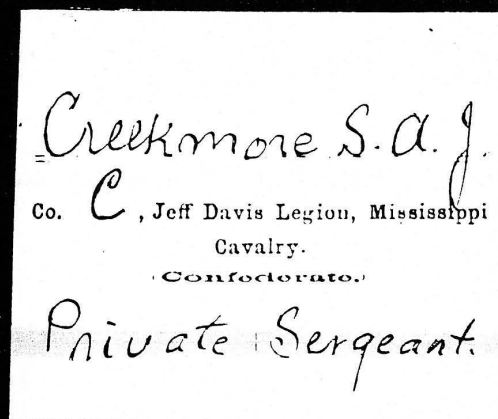 Creekmore S. A. J.
Co. C, Jeff Davis Legion, Mississippi
Cavalry.
(Confederate.)
Private | Sergeant.